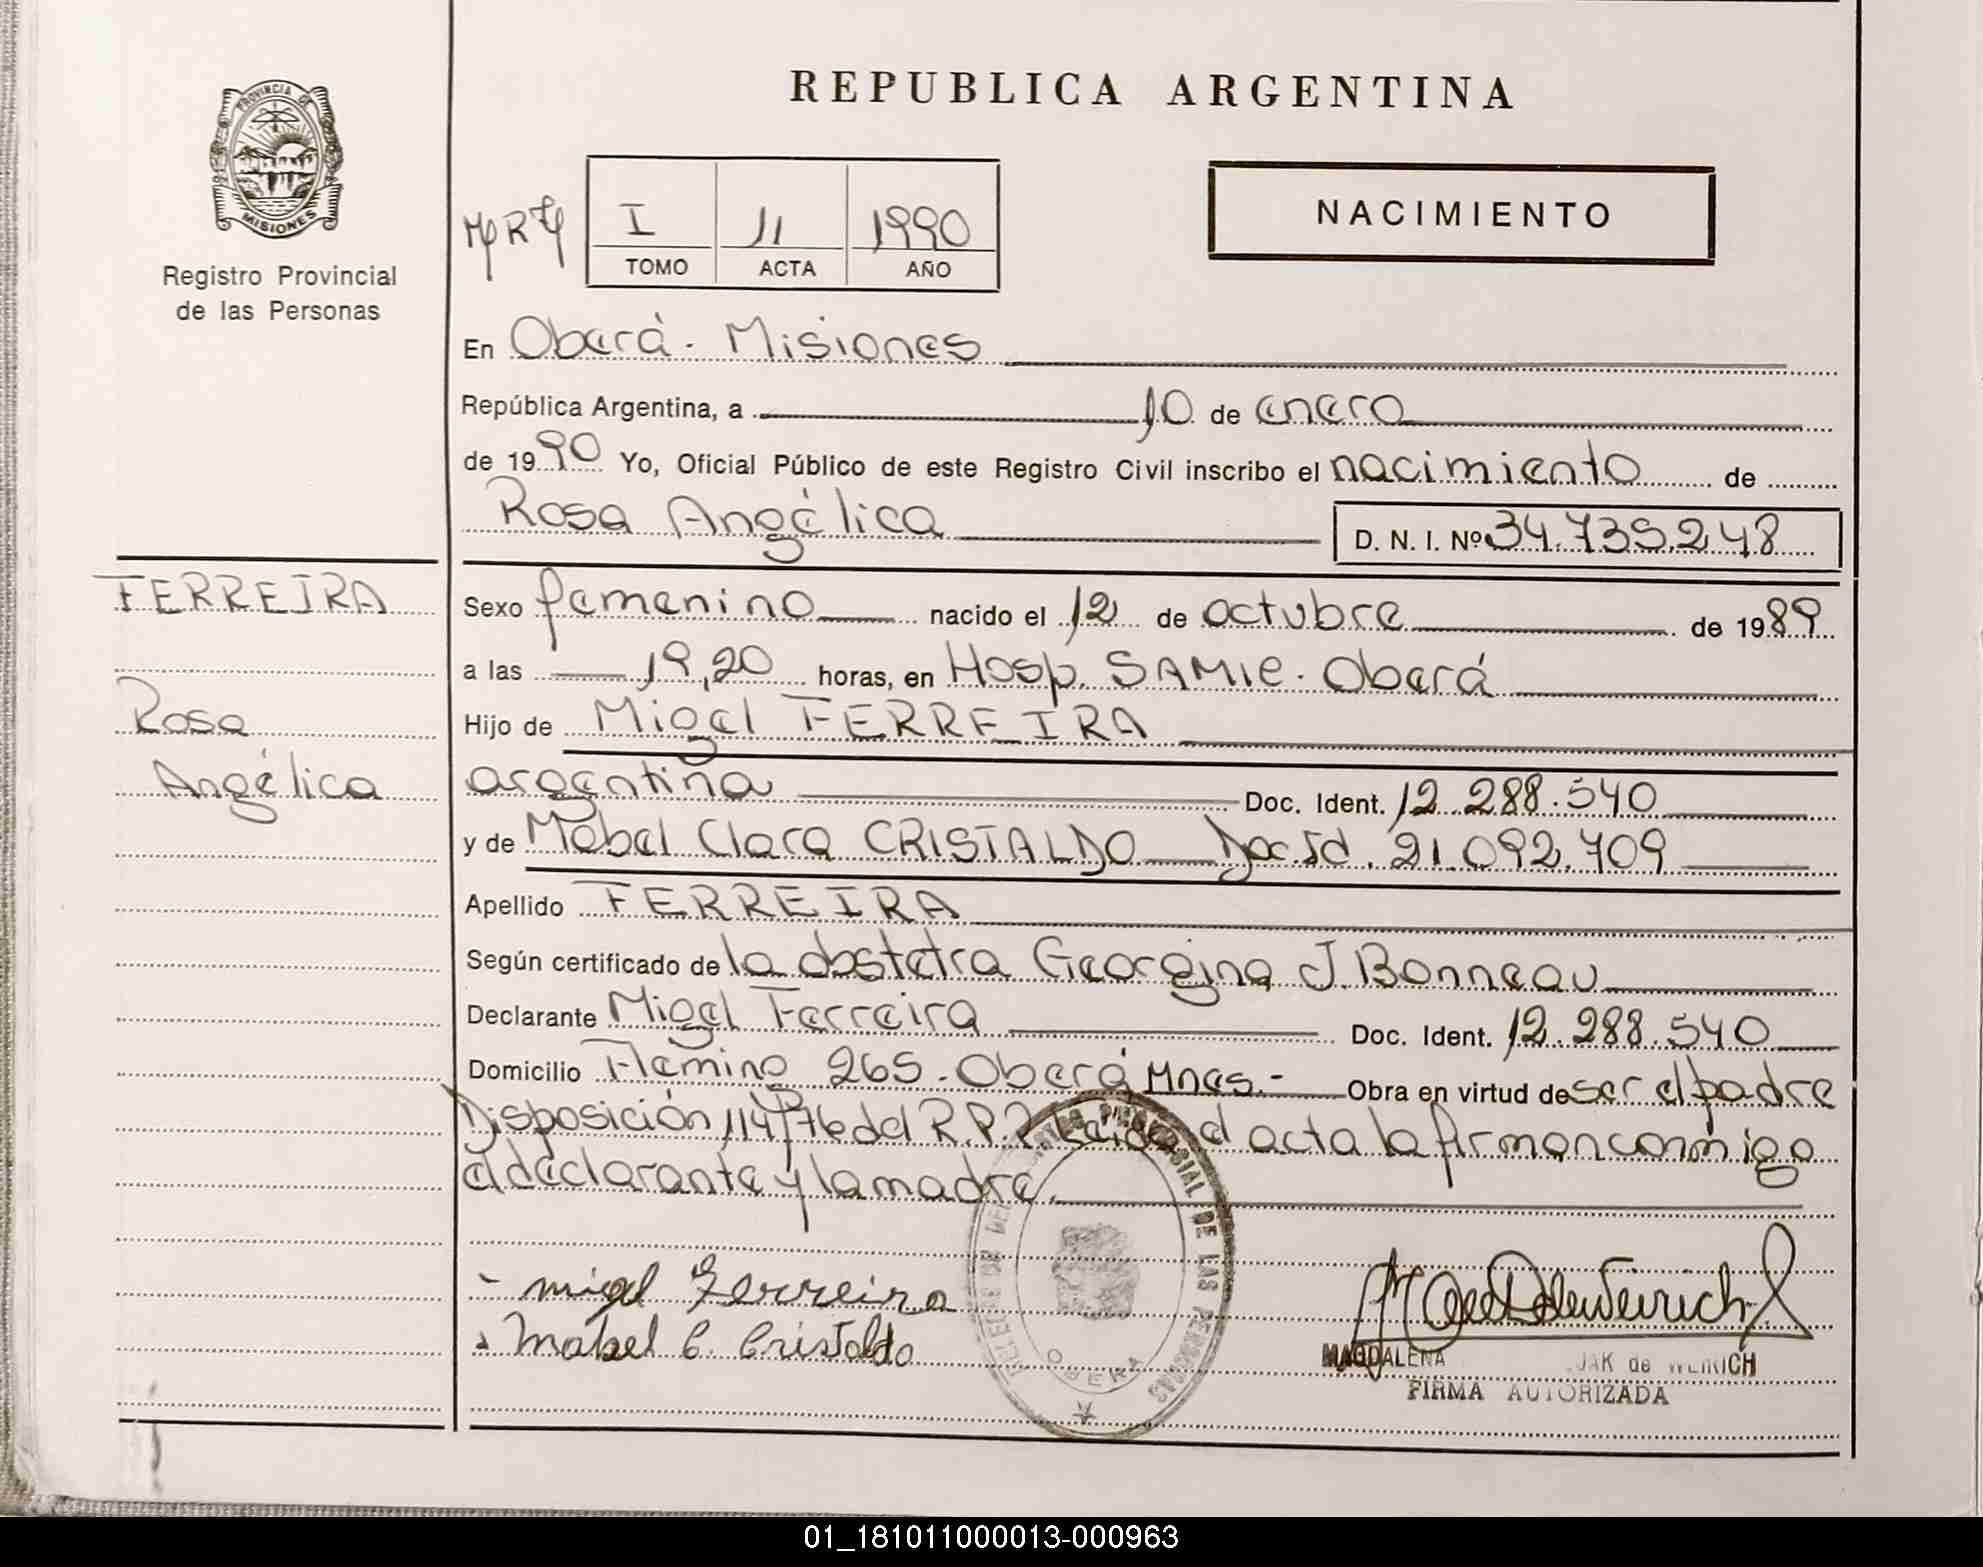 REPUBLICA ARGENTINA
PROVINCIA DE
MISIONES
Registro Provincial
de las Personas
I 11 1990
TOMO ACTA AÑO
NACIMIENTO
En Oberá - Misiones
República Argentina, a 10 de enero
de 1990 Yo, Oficial Público de este Registro Civil inscribo el nacimiento de
Rosa Angélica D. N. I. Nº 34.735.248
FERREIRA
Rosa
Angélica
Sexo femenino nacido el 12 de octubre de 1989
a las 19,20 horas, en Hosp. SAMIC - Oberá
Hijo de Migel FERREIRA
argentina Doc. Ident. 12.288.540
y de Mabel Clara CRISTALDO Doc. Id. 21.092.709
Apellido FERREIRA
Según certificado de la obstetra Georgina J. Bonneau
Declarante Migel Ferreira Doc. Ident. 12.288.540
Domicilio Flemino 265 - Oberá Mnes.- Obra en virtud de ser el padre
Disposición 114/76 del R.P.P. Leida el acta la firman conmigo
el declarante y la madre.
- migel Ferreira
Mabel C. Cristaldo
PROVINCIAL DE LAS PERSONAS
OBERA
MAGDALENA JAK de WEIRICH
FIRMA AUTORIZADA
01_181011000013-000963